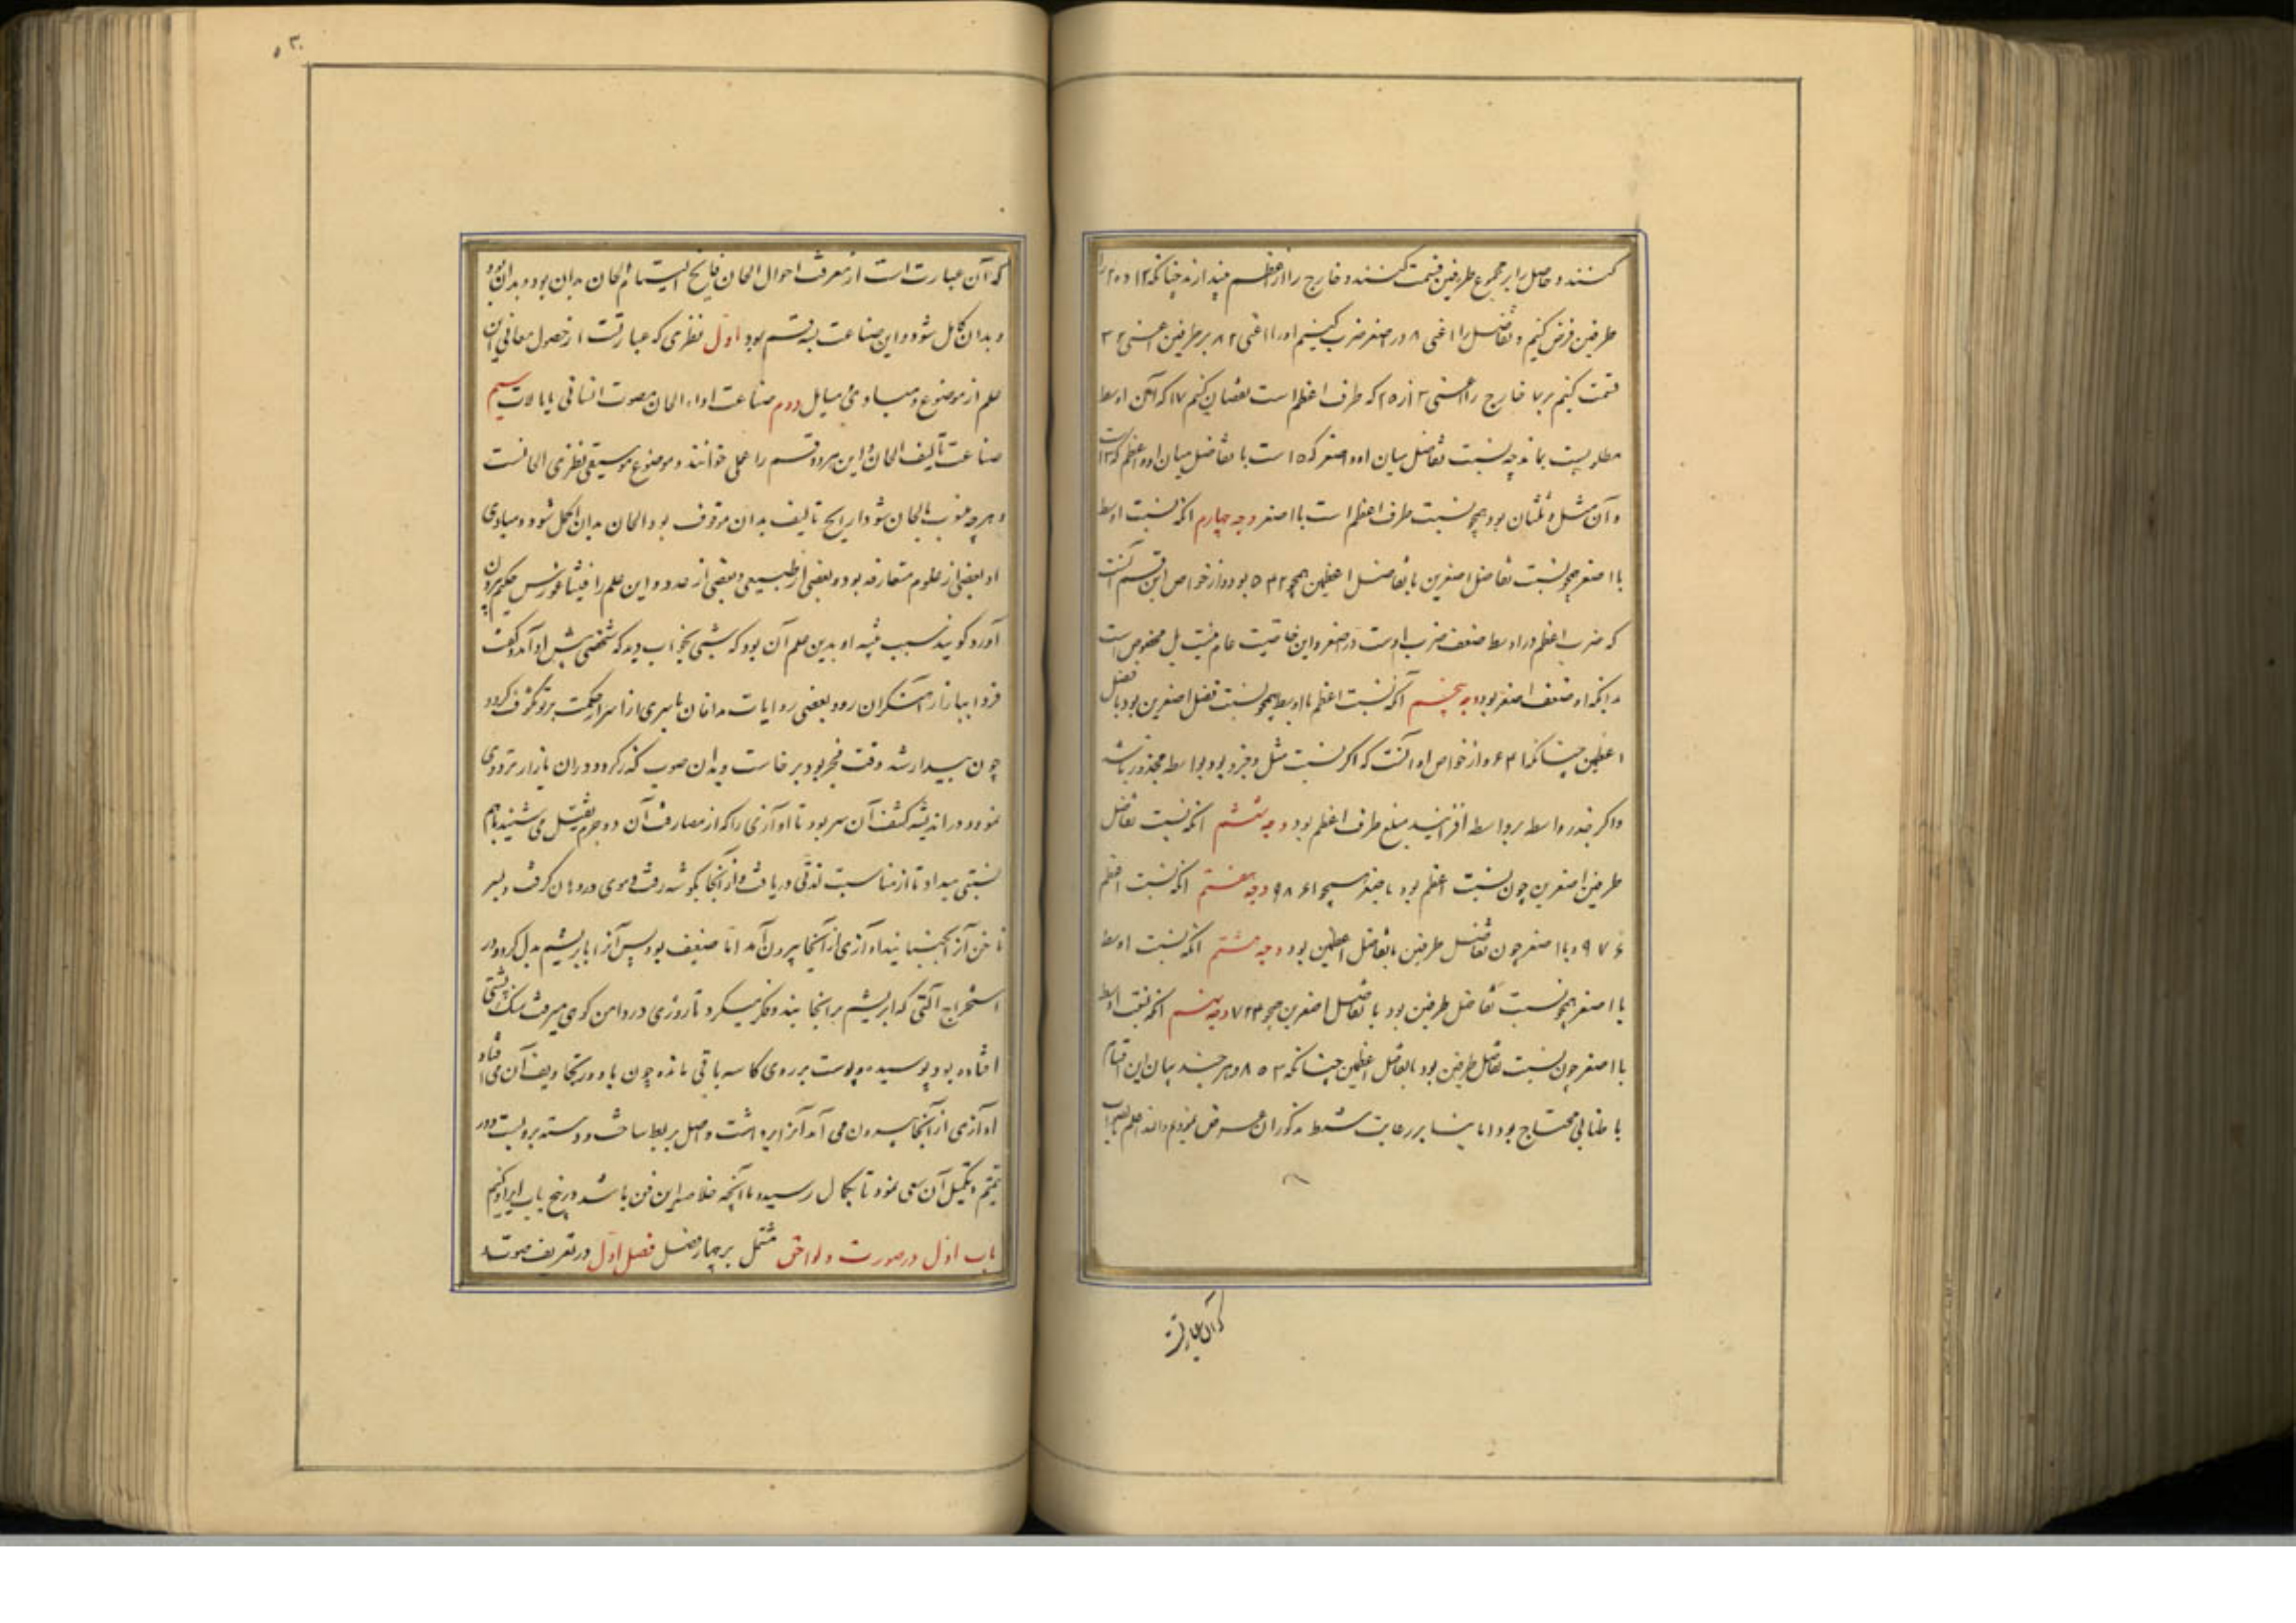 کنند و حاصل را بر مجموع طرفین قسمت کنند و خارج را از اعظم بیندازند چنانکه ۱۲ و ۲۰ را
طرفین فرض کنیم و تفاضل را اعنی ۸ در اصغر ضرب کنیم او را اعنی ۸۲ بر طرفین اعنی ۳۲
قسمت کنیم خارج را اعنی ۳ از ۲۵ که طرف اعظم است نقصان کنیم ۱۷ که آن اوسط
مطلوبست بماند چه نسبت تفاضل میان او و اصغر که ۵ است با تفاضل میان او و اعظم که ۳ است
و آن مثل و ثلثان بود همچو نسبت طرف اعظم است با اصغر وجه چهارم آنکه نسبت اوسط
با اصغر همچو نسبت تفاضل اصغرین با تفاضل اعظمین همچو ۲ ۴ ۵ بود و از خواص این قسم آنست
که ضرب اعظم در اوسط ضعف ضرب اوست در اصغر و این خاصیت عام نیست بل مخصوص است
بدانکه او ضعف اصغر بود وجه پنجم آنکه نسبت اعظم با اوسط همچو نسبت فضل اصغرین بود با فضل
اعظمین چنانکه ۱ ۴ ۶ و از خواص او آنست که اگر نسبت مثل و جزو بود واسطه مجذور باشد
و اگر جذر واسطه بر واسطه افزایند مبلغ طرف اعظم بود وجه ششم آنکه نسبت تفاضل
طرفین اصغرین چون نسبت اعظم بود با صغر همچو ۶ ۸ ۹ وجه هفتم آنکه نسبت اعظم
۶ ۷ ۹ با اصغر چون تفاضل طرفین با تفاضل اعظمین بود وجه هشتم آنکه نسبت اوسط
با اصغر همچو نسبت تفاضل طرفین بود با تفاضل اصغرین همچو ۳ ۴ ۷ وجه نهم آنکه نسبت اوسط
با اصغر چون نسبت تفاضل طرفین بود با تفاضل اعظمین چنانکه ۳ ۵ ۸ و هر چند بیان این اقسام
با طنابی محتاج بود اما بنا بر رعایت شرط مذکور ان عرض نمودیم والله اعلم بالصواب
که آن عبارتست
که آن عبارت است از معرفت احوال الحان و آنچ التیام الحان بدان بود و بدان بود
و بدان کامل شود و این صناعت بسه قسم بود اول نظری که عبارتست از حصول معانی این
علم از موضوع و مبادی و مسایل دوم صناعت اداء الحان بصوت انسانی یا بآلات سیم
صناعت تألیف الحان و این هر دو قسم را عملی خوانند و موضوع موسیقی نظری الحانست
و هر چه منسوب بالحان شود از آنچ تألیف بدان موقوف بود و الحان بدان اکمل شود و مبادی
او بعضی از علوم متعارفه بود و بعضی از طبیعی و بعضی از عدد و این علم را فیثاغورس حکیم بیرون
آورد گویند سبب تنبه او بدین علم آن بود که شبی بخواب دید که شخصی پیش او آمد و گفت
فردا ببازار آهنگران رو و بعضی روایات ندافان تا سری از اسرار حکمت بر تو مکشوف گردد
چون بیدار شد وقت فجر بود برخاست و بدان صوب گذر کرد و در آن بازار ترددی
نمود و در اندیشه کشف آن سر بود تا آوازی را که از مصارف آن دو جرم ثقیل می شنید با هم
نسبتی میداد تا از مناسبت ذوقی دریافت و از آنجا بگوشه رفت و موی در دهان گرفت و بسر
ناخن آنرا بجنبانید آوازی از آنجا بیرون آمد اما ضعیف بود پس آنرا بابریشم بدل کرد و در
استخراج آلتی که ابریشم بر آنجا بندد فکر میکرد تا روزی در دامن کوهی میرفت سنگ پشتی
افتاده بود پوسیده و پوست بر روی کاسه باقی مانده چون باد در تجاویف آن می افتاد
آوازی از آنجا بیرون می آمد آنرا برداشت و اصل بربط ساخت و دسته برو بست و در
تتمیم و تکمیل آن سعی نمود تا بکمال رسید ما آنچه خلاصه این فن باشد در پنج باب ایراد کنیم
باب اول در صورت و لواحق مشتمل بر چهار فصل فصل اول در تعریف صوت